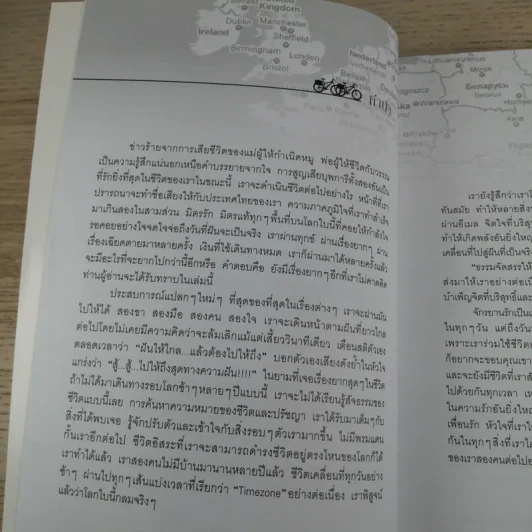 Belfast
United
Kingdom
Ireland
Dublin
Manchester
Sheffield
Birmingham
London
Bristol
Nederland
Netherlands
Minsk
Беларусь
Belarus
Warszawa
คำนำ
ข่าวร้ายจากการเสียชีวิตของแม่ผู้ให้กำเนิดหมู พ่อผู้ให้ชีวิตกับวรรณ
เป็นความรู้สึกแน่นอกเหนือคำบรรยายจากใจ การสูญเสียบุพการีทั้งสองอันเป็น
ที่รักยิ่งที่สุดในชีวิตของเราในขณะนี้ เราจะดำเนินชีวิตต่อไปอย่างไร หน้าที่ที่เรา
ปรารถนาจะทำชื่อเสียงให้กับประเทศไทยของเรา ความภาคภูมิใจที่เราทำสำเร็จ
มาเกินสองในสามส่วน มิตรรัก มิตรแท้ทุกๆพื้นที่บนโลกใบนี้ที่คอยให้กำลังใจ
รอคอยอย่างใจจดใจจ่อถึงวันที่ฝันจะเป็นจริง เราผ่านทุกข์ ผ่านเรื่องยากๆ ผ่าน
เรื่องเฉียดตายมาหลายครั้ง เงินที่ใช้เดินทางหมด เราก็ผ่านมาได้หลายครั้งแล้ว
จะมีอะไรที่จะยากไปกว่านี้อีกหรือ คำตอบคือ ยังมีเรื่องยากๆอีกที่เราไม่คาดคิด
ท่านผู้อ่านจะได้รับทราบในเล่มนี้
ประสบการณ์แปลกๆใหม่ๆ ที่สุดของที่สุดในเรื่องต่างๆ เราจะผ่านมัน
ไปให้ได้ สองขา สองมือ สองคน สองใจ เราจะเดินหน้าตามฝันที่ยาวไกล
ต่อไปโดยไม่เคยมีความคิดว่าจะล้มเลิกแม้แต่เสี้ยววินาทีเดียว เตือนสติตัวเอง
ตลอดเวลาว่า "ฝันให้ไกล...แล้วต้องไปให้ถึง" บอกตัวเองเสียงดังย้ำในหัวใจ
แกร่งว่า "สู้...สู้...ไปให้ถึงสุดทางความฝัน!!!!" ในยามที่เจอเรื่องยากสุดๆในชีวิต
ถ้าไม่ได้มาเดินทางรอบโลกช้าๆหลายๆปีแบบนี้ เราจะไม่ได้เรียนรู้สัจธรรมของ
ชีวิตแบบนี้เลย การค้นหาความหมายของชีวิตและปรัชญา เราได้รับมาเต็มๆกับ
สิ่งที่ได้พบเจอ รู้จักปรับตัวและเข้าใจกับสิ่งรอบๆตัวเรามากขึ้น ไม่มีพรมแดน
กั้นเราอีกต่อไป ชีวิตอิสระที่เราจะสามารถดำรงชีวิตอยู่ตรงไหนของโลกก็ได้
เราทำได้แล้ว เราสองคนไม่มีบ้านมานานหลายปีแล้ว ชีวิตเคลื่อนที่ทุกวันอย่าง
ช้าๆ ผ่านไปทุกๆเส้นแบ่งเวลาที่เรียกว่า "Timezone" อย่างต่อเนื่อง เราพิสูจน์
แล้วว่าโลกใบนี้กลมจริงๆ
เรายังรู้สึกว่าเราโ
ทันสมัย ทำให้หลายสิ่งห
ผ่านอีเมล จิตใจที่บริสุท
ทำให้เกิดพลังอันยิ่งใหญ่
เคลื่อนที่ไปสู่ฝันที่เป็นจริง
"ธรรมจัดสรรให้
ส่งมาให้เราอย่างต่อเนื่
บำเพ็ญจิตที่บริสุทธิ์และ
จักรยานรักเป็นเ
ในทุกๆวัน แต่ถึงวันท
เพราะเราร่วมใช้ชีวิตอย
ก็อยากจะขอบคุณเขา
และจะยังมีชีวิตที่เราสำ
ไปด้วยกันทุกเวลา เห
ในความรักอันยิ่งใหญ
เพื่อนรัก หัวใจที่เราให
กันในทุกๆสิ่งที่เราได้
ของเราสองคนต่อไปอ